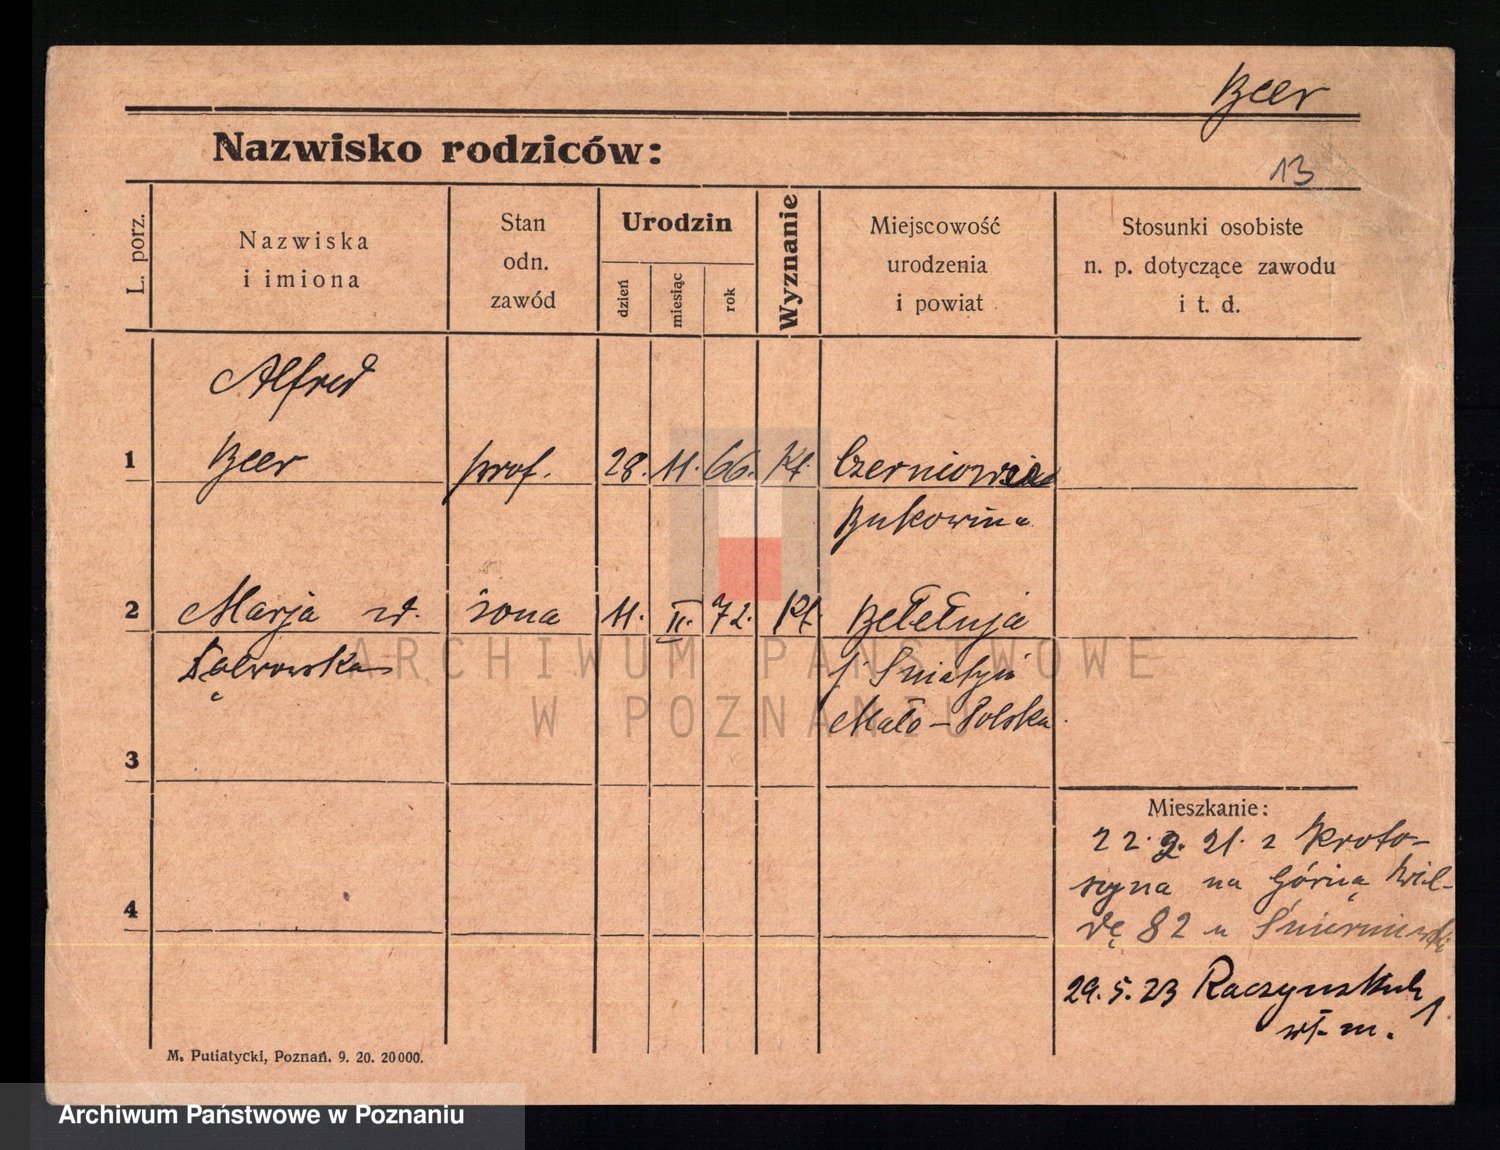 Beer
Nazwisko rodziców:
13
L. porz.
Nazwiska
i imiona
Stan
odn.
zawód
Urodzin
dzień
miesiąc
rok
Wyznanie
Miejscowość
urodzenia
i powiat
Stosunki osobiste
n. p. dotyczące zawodu
i t. d.
Alfred
1 Beer prof. 28. 11. 66. kt. Czerniowce
Bukowina
2 Marja zd. żona 11. II. 72. kt. Bełełuja
Dąbrowska
p. Śniatyń
Mało-Polska.
3
4
Mieszkanie:
22. 2. 21. z Kroto-
szyna na Górną Wil-
dę 82 u
29. 5. 23 Raczyńskich 1
wł. m.
M. Putiatycki, Poznań. 9. 20. 20000.
ARCHIWUM PAŃSTWOWE
W POZNANIU
Archiwum Państwowe w Poznaniu